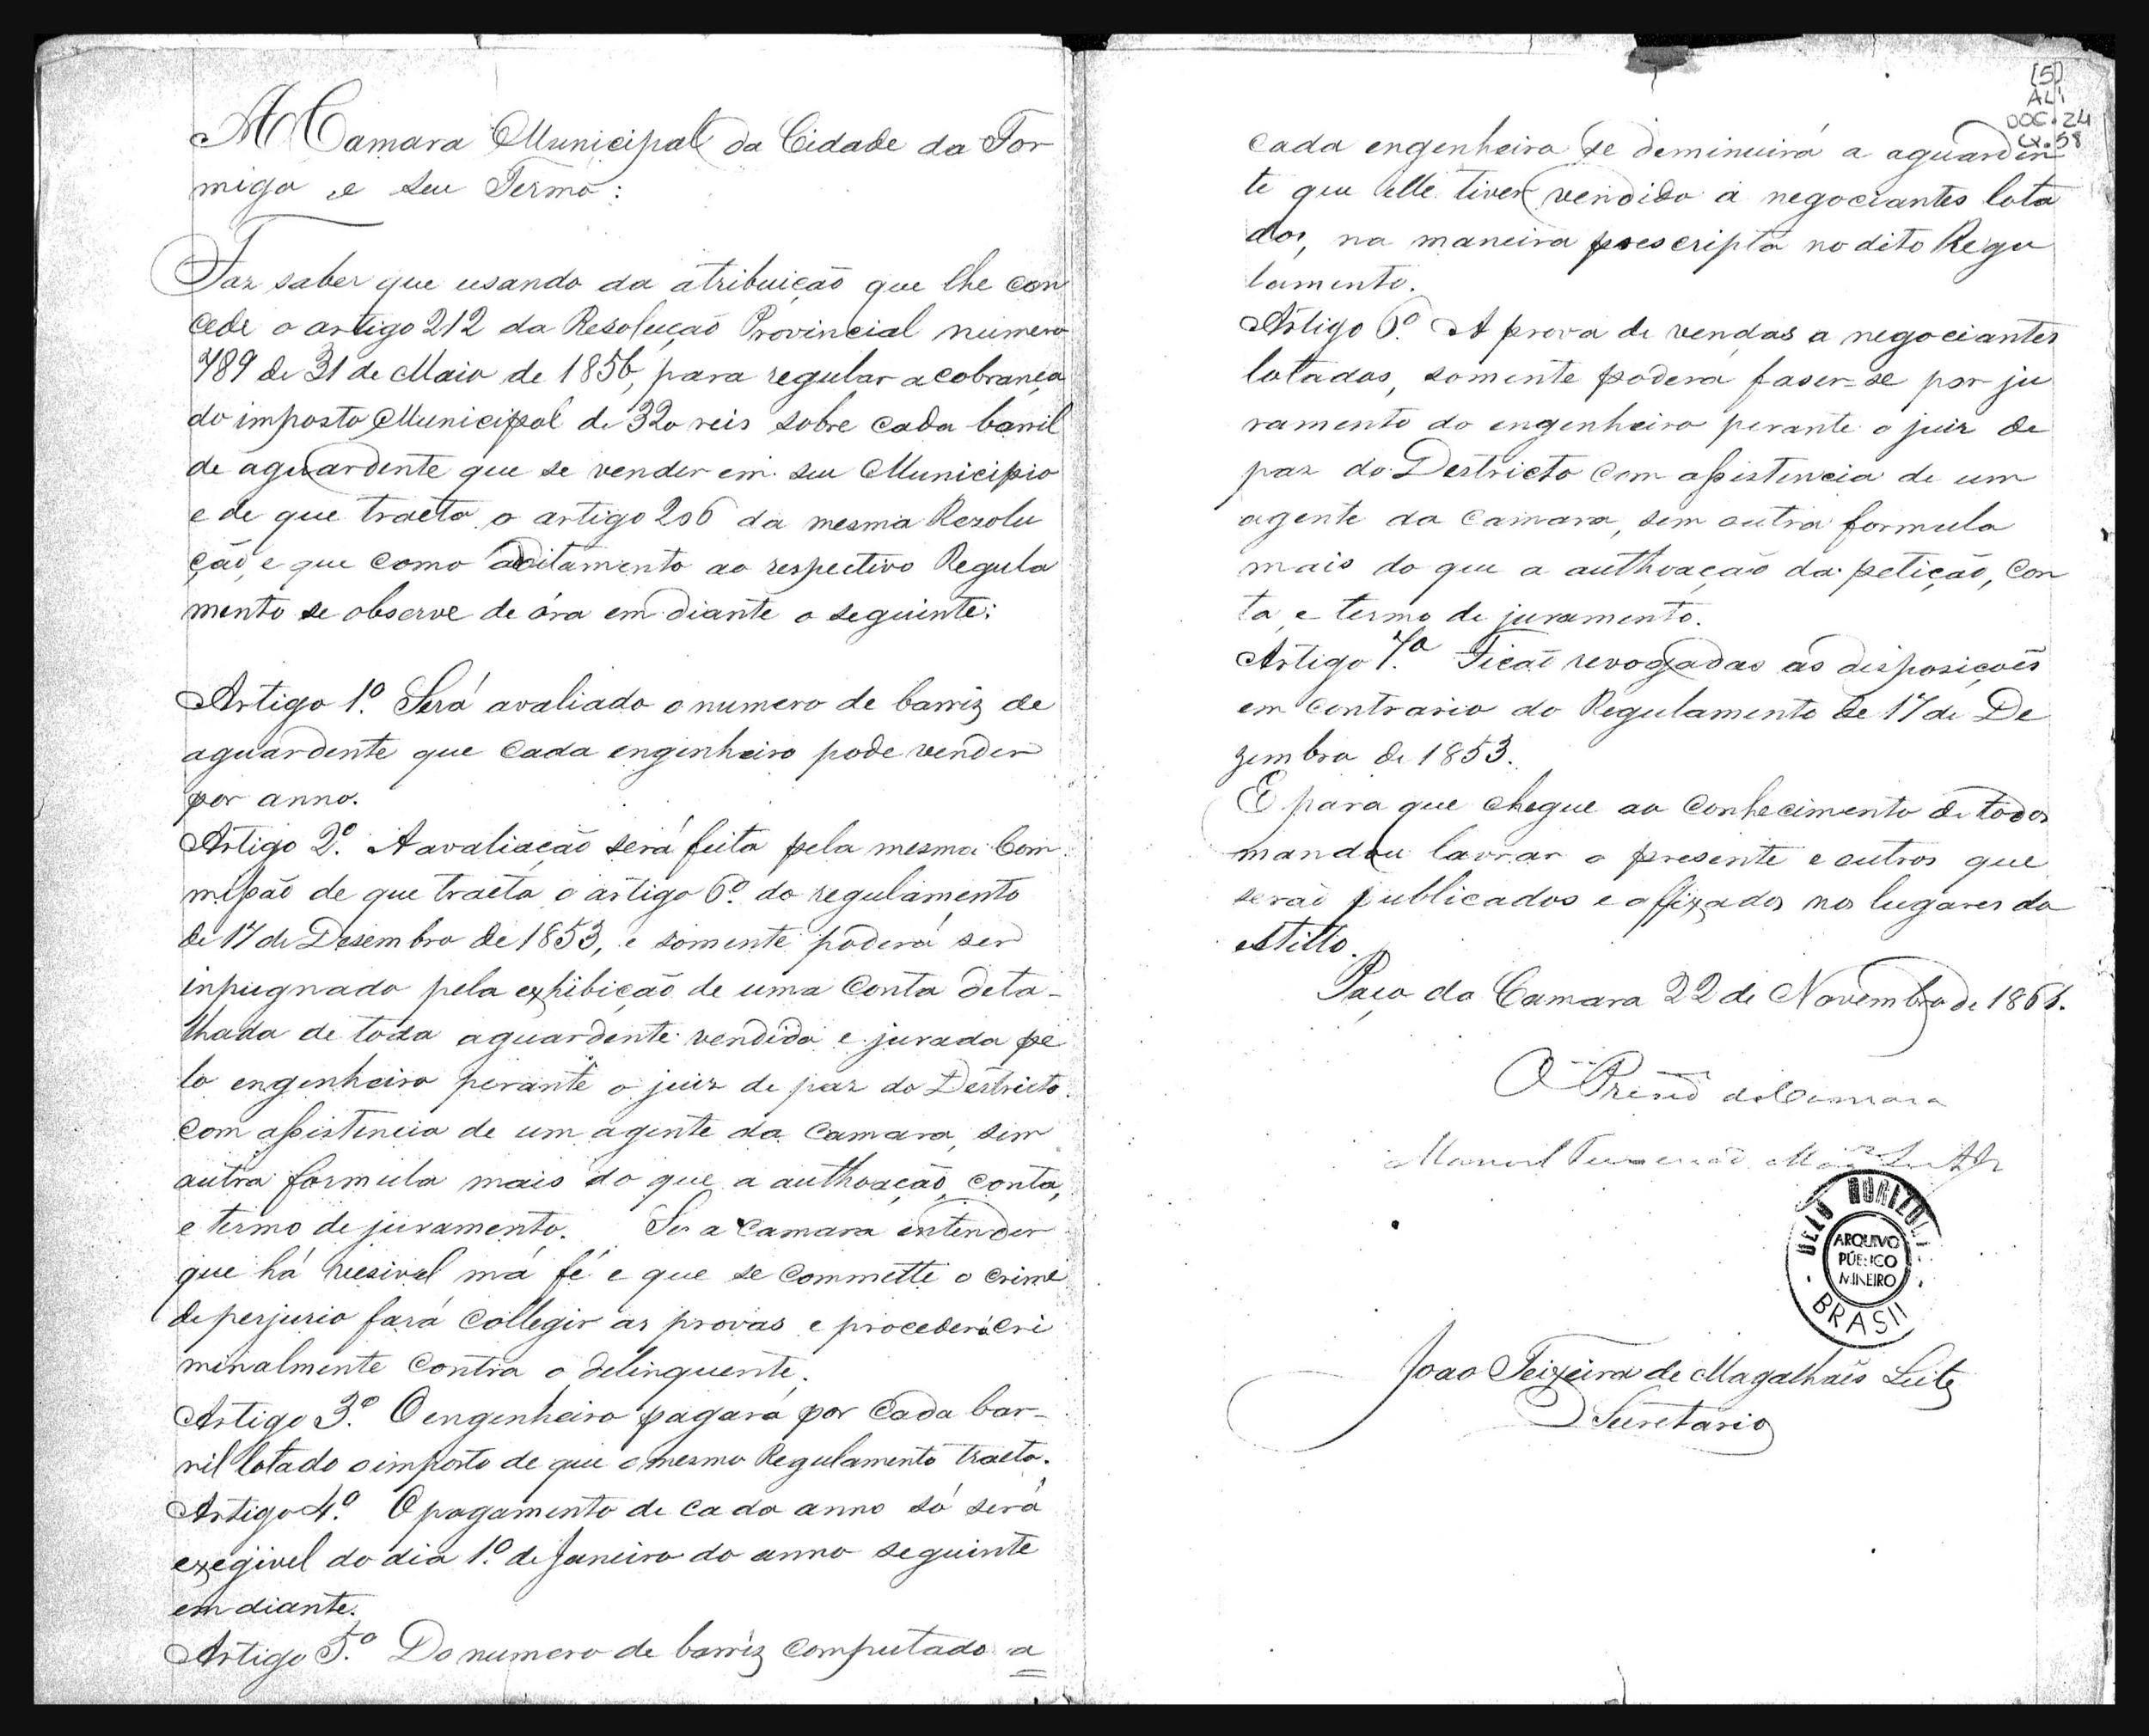 A Camara Municipal da Cidade da For
miga e seu Termo:
Faz saber que usando da atribuição que lhe con
cede o artigo 212 da Resolução Provincial numero
789 de 31 de Maio de 1856, para regular a cobrança
do imposto Municipal de 320 reis sobre cada barril
de aguardente que se vender em seu Municipio
e de que tracta o artigo 206 da mesma Rezolu
ção, e que como aditamento ao respectivo Regula
mento se observe de óra em diante o seguinte:
Artigo 1º. Será avaliado o numero de barriz de
aguardente que cada engenheiro pode vender
por anno.
Artigo 2º. A avaliação será feita pela mesma Com
missão de que tracta o artigo 6º. do regulamento
de 17 de Desembro de 1853, e somente poderá ser
inpugnado pela exhibição de uma conta deta-
lhada de toda aguardente vendida e jurada pe
lo engenheiro perante o juiz de paz do Destricto
com assistencia de um agente da camara, sem
outra formula mais do que a authoação, conta,
e termo de juramento. Se a camara entender
que há má fé e que se commette o crime
de perjurio fará collegir as provas e procederá cri
minalmente contra o delinquente.
Artigo 3º. O engenheiro pagará por cada bar-
ril lotado o imposto de que o mesmo Regulamento tracta.
Artigo 4º. O pagamento de cada anno só será
exegivel do dia 1º. de Janeiro do anno seguinte
em diante.
Artigo 5º. Do numero de barriz computado a
[5]
AL1
DOC. 24
CX. 58
cada engenheiro se deminuirá a aguarden
te que elle tiver vendido a negociantes lota
dos, na maneira prescripta no dito Regu
lamento.
Artigo 6º. A prova de vendas a negociantes
lotados, somente poderá faser-se por ju
ramento do engenheiro perante o juiz de
paz do Destricto com assistencia de um
agente da camara, sem outra formula
mais do que a authoação da petição, con
ta, e termo de juramento.
Artigo 7º. Ficão revogadas as disposiçoẽs
em contrario do Regulamento de 17 de De
zembro de 1853.
E para que chegue ao conhecimento de todos
mandou lavrar o presente e outros que
serão publicados e affixados nos lugares do
estillo.
Paço da Camara 22 de Novembro de 1861.
O Presid da Camara
Manoel
BELO HORIZONTE
ARQUIVO
PÚBLICO
MINEIRO
BRASIL
João Teixeira de Magalhaẽs Leite
Secretario